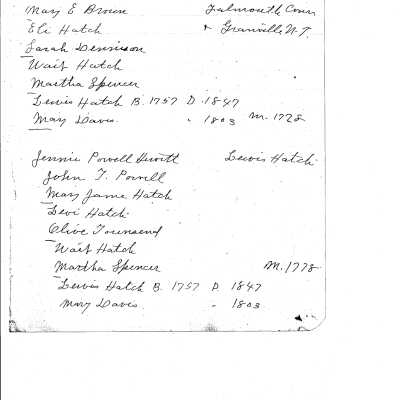 Mary E Brown Falmouth Conn
Eli Hatch & Granville N.Y.
Sarah Dennison
Wait Hatch
Martha Spencer
Lewis Hatch B. 1757 D. 1847
Mary Davis. " 1803 M. 1778
Jennie Powell Hewitt Lewis Hatch
John T. Powell
Mary Jane Hatch
Levi Hatch
Olive Townsend
Wait Hatch
Martha Spencer M. 1778
Lewis Hatch B. 1757 D. 1847
Mary Davis. " 1803